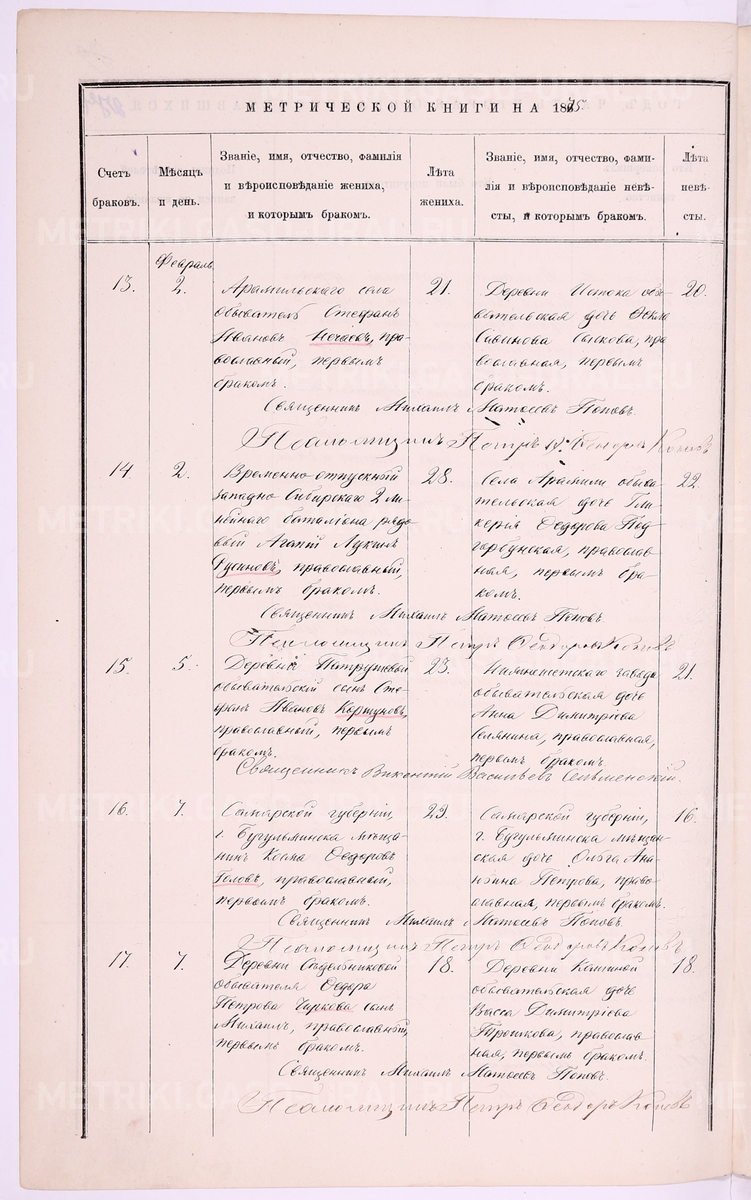 МЕТРИЧЕСКОЙ КНИГИ НА 1875
Счетъ
браковъ.
Мѣсяцъ
и день.
Званіе, имя, отчество, фамилія
и вѣроисповѣданіе жениха,
и которымъ бракомъ.
Лѣта
жениха.
Званіе, имя, отчество, фами-
лія и вѣроисповѣданіе невѣ-
сты, и которымъ бракомъ.
Лѣта
невѣ-
сты.
Февраль
13.
2.
Арамильскаго села
обыватель Стефанъ
Ивановъ Нечаевъ, пра-
вославный, первымъ
бракомъ.
21.
Деревни Истока обы-
вательская дочь
Савинова Сыскова, пра
вославная, первымъ
бракомъ.
20.
Священникъ Михаилъ Матѳеевъ Поповъ.
Псаломщикъ Петръ Ѳеодоровъ
14.
2.
Временно-отпускный
Западно Сибирскаго 2 ли-
нейнаго баталіона рядо
вый Агапій Лукинъ
православный,
первымъ бракомъ.
28.
Села Арамили обыва
тельская дочь Гли-
керія Ѳедорова Под-
горбунская, православ-
ная, первымъ бра-
комъ.
22.
Священникъ Михаилъ Матѳеевъ Поповъ.
Псаломщикъ Петръ Ѳеодоровъ
15.
5.
Деревни Патрушевой
обывательскій сынъ Сте
фанъ Ивановъ Коршуновъ,
православный, первымъ
бракомъ.
23.
завода
обывательская дочь
Анна Димитріева
православная,
первымъ бракомъ.
21.
Священникъ Викентій Васильевъ
16.
7.
Самарской губерніи,
г. Бугульминска мѣща-
нинъ Ѳедоровъ
православный,
первымъ бракомъ.
23.
Самарской губерніи,
г. Бугульминска мѣщан-
ская дочь Ольга Ана-
ньина Петрова, право-
славная, первымъ бракомъ.
16.
Священникъ Михаилъ Матѳеевъ Поповъ.
Псаломщикъ Петръ Ѳеодоровъ
17.
7.
Деревни Сѣдельниковой
обывателя Ѳедора
Петрова Чиркова сынъ
Михаилъ, православный,
первымъ бракомъ.
18.
Деревни
обывательская дочь
Васса Димитріева
Трошкова, православ-
ная, первымъ бракомъ.
18.
Священникъ Михаилъ Матѳеевъ Поповъ.
Псаломщикъ Петръ Ѳеодоровъ